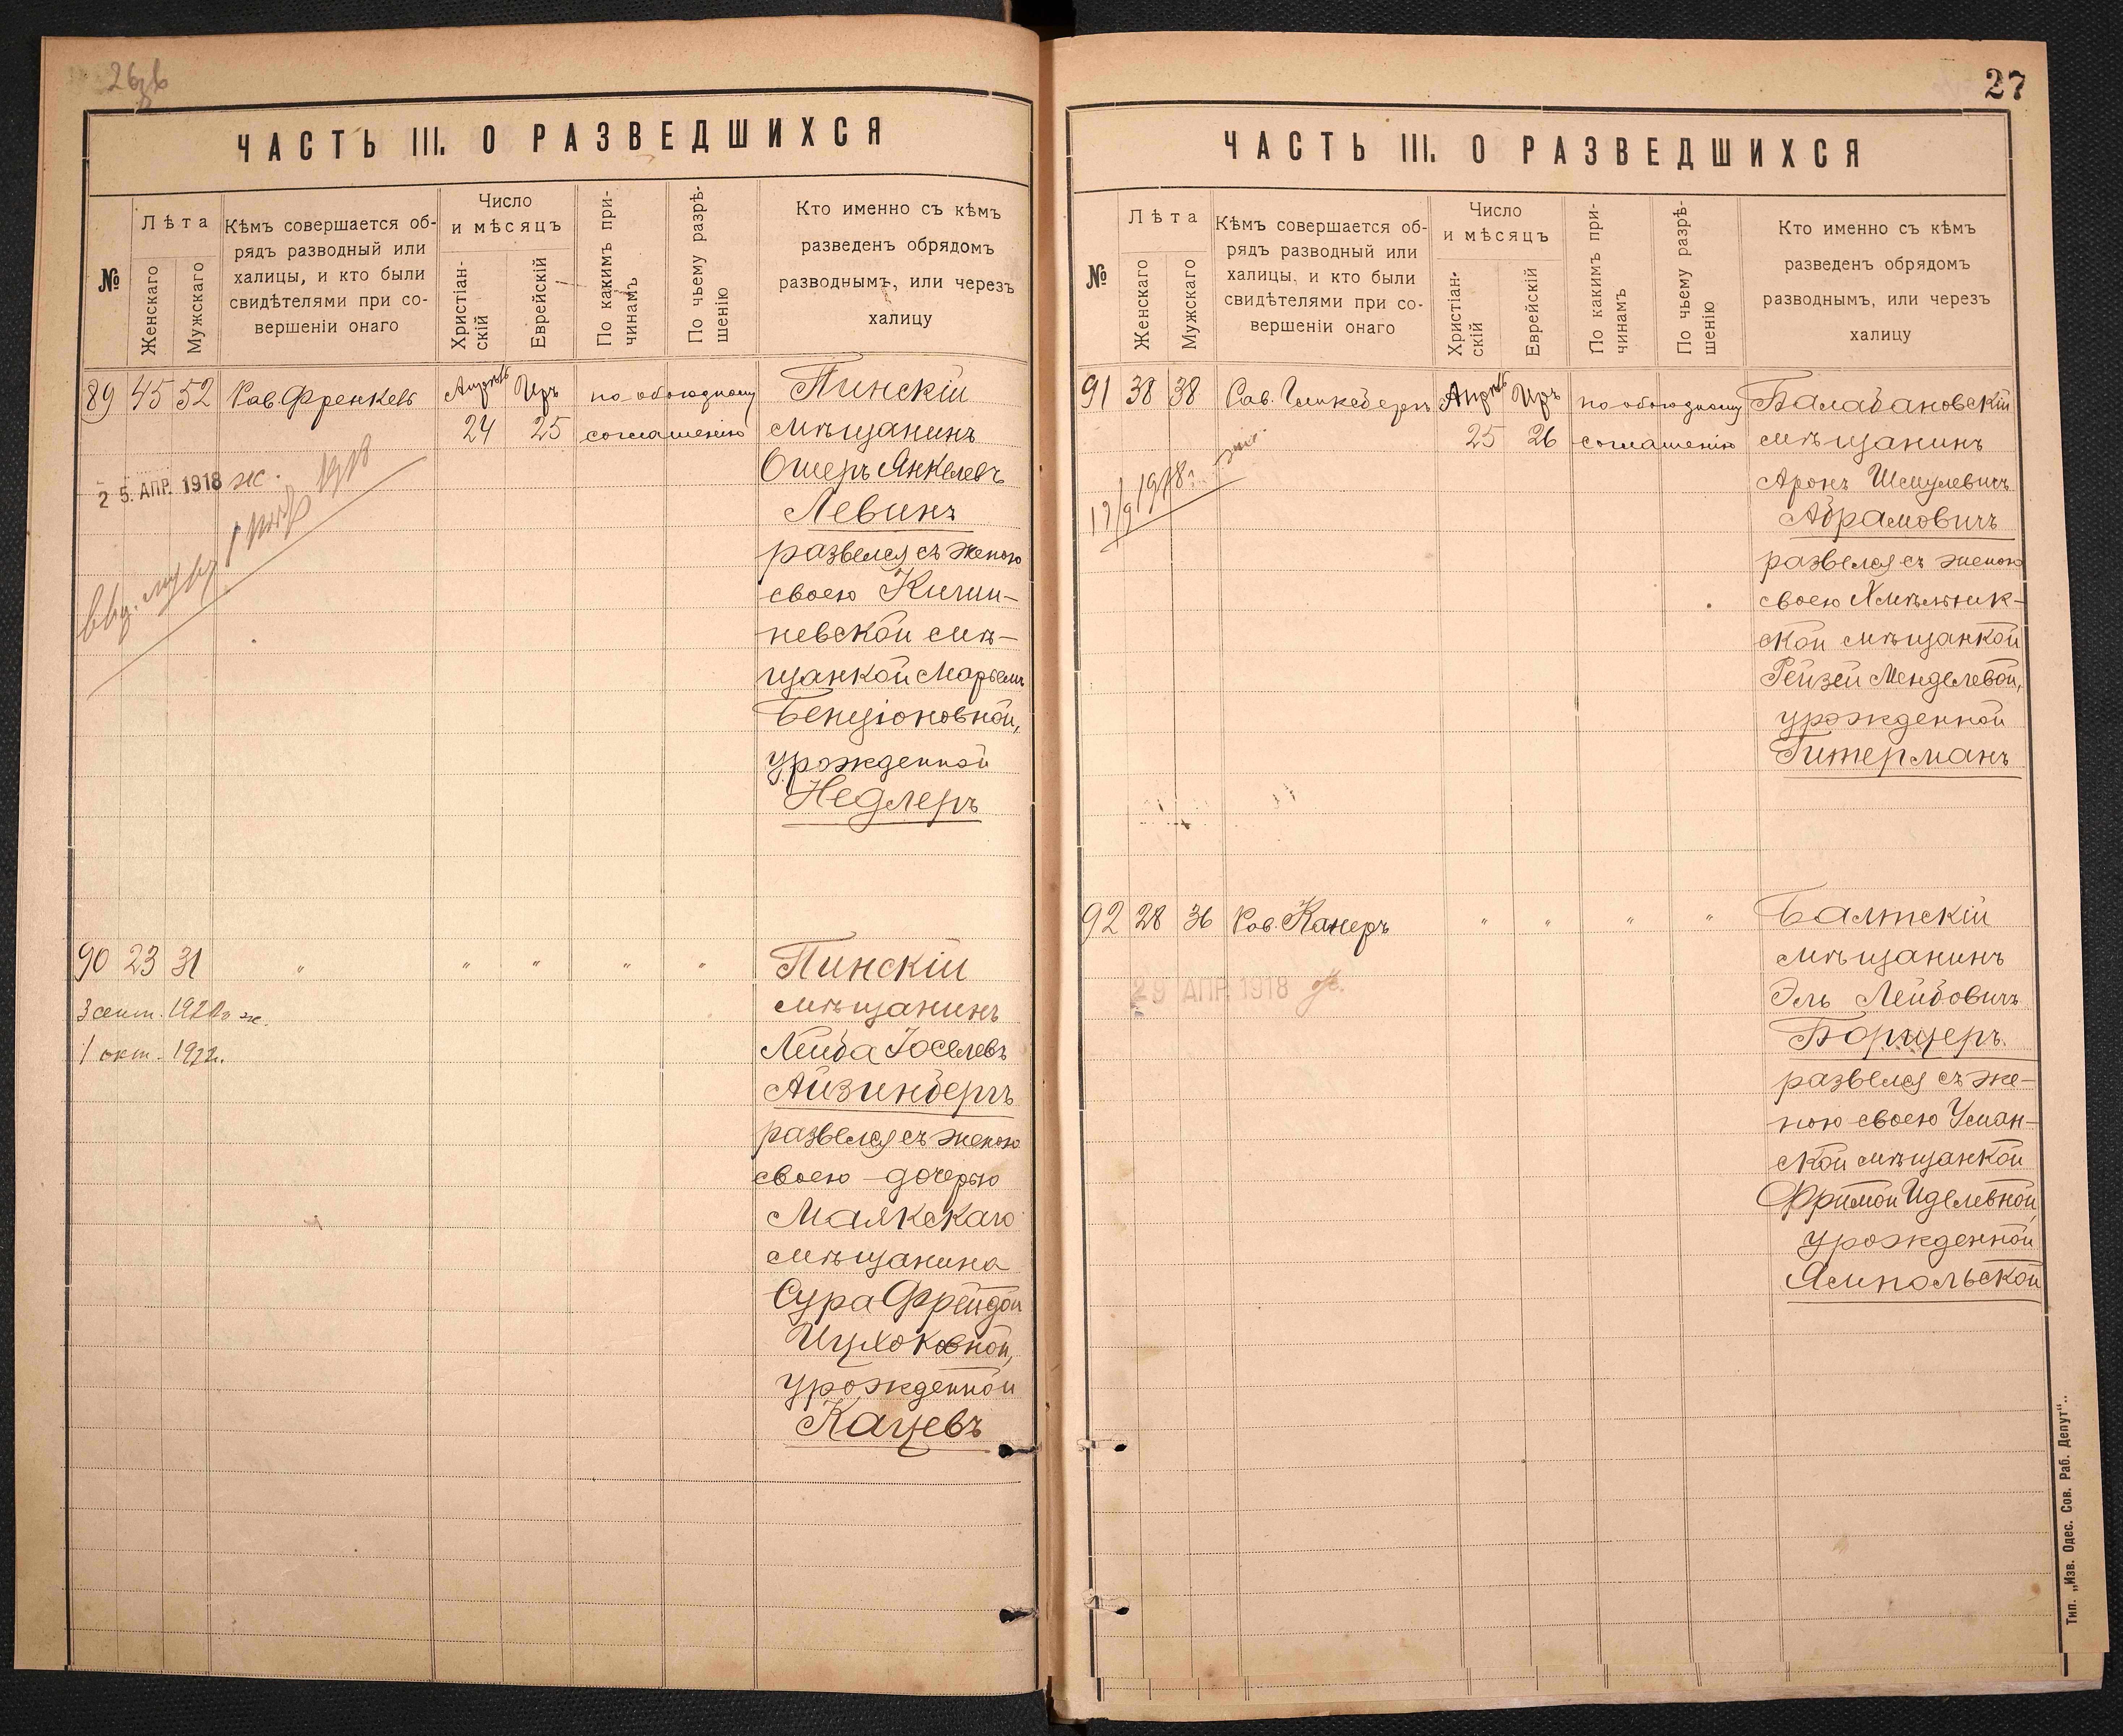 ЧАСТЬ III. О РАЗВЕДШИХСЯ
№
Лѣта
Женскаго
Мужскаго
Кѣмъ совершается об-
рядъ разводный или
халицы, и кто были
свидѣтелями при со-
вершеніи онаго
Число
и мѣсяцъ
Христіан-
скій
Еврейскій
По какимъ при-
чинамъ
По чьему разрѣ-
шенію
Кто именно съ кѣмъ
разведенъ обрядомъ
разводнымъ, или черезъ
халицу
89 45 52 Рав. Френкель Апрель Иръ по обоюдному
24 25 соглашенію
Пинскій
мѣщанинъ
Ошеръ Янкелевъ
Левинъ
развелся съ женою
своею Киши-
невской мѣ-
щанкой Марьемъ
Бенціоновной,
урожденной
Недлеръ
25. АПР. 1918 ж.
90 23 31 " " " " "
3 сент. ж.
1 окт. 1922.
Пинскій
мѣщанинъ
Лейба Іоселевъ
Айзинбергъ
развелся съ женою
своею дочерью
Маякскаго
мѣщанина
Сура Фрейдой
Ицхоковной,
урожденной
Кацевъ
27
ЧАСТЬ III. О РАЗВЕДШИХСЯ
№
Лѣта
Женскаго
Мужскаго
Кѣмъ совершается об-
рядъ разводный или
халицы, и кто были
свидѣтелями при со-
вершеніи онаго
Число
и мѣсяцъ
Христіан-
скій
Еврейскій
По какимъ при-
чинамъ
По чьему разрѣ-
шенію
Кто именно съ кѣмъ
разведенъ обрядомъ
разводнымъ, или черезъ
халицу
91 38 38 Рав. Апрель Иръ по обоюдному
25 26 соглашенію
Балабановскій
мѣщанинъ
Аронъ Шмулевичъ
Абрамовичъ
развелся съ женою
своею Хмѣльник-
ской мѣщанкой
Рейзей Менделевой,
урожденной
Гитерманъ
92 28 36 Рав. Канеръ " " " "
29 АПР. 1918 ж.
Балтскій
мѣщанинъ
Эль Лейбовичъ
Борщеръ
развелся съ же-
ною своею Уман-
ской мѣщанкой
Фримой Иделевной,
урожденной
Ямпольской
Тип. „Изв. Одес. Сов. Раб. Депут“.